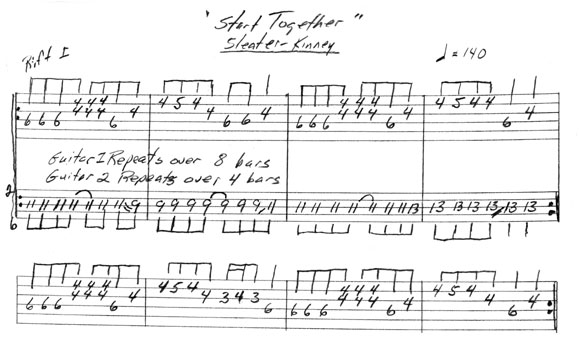 "Start Together"
Sleater-Kinney
Riff I ♩=140
4 4 4 4 5 4 4 4 4 4 5 4 4
6 6 6 4 4 4 6 4 4 6 6 4 6 6 6 4 4 4 6 4 6 4
Guitar 1 Repeats over 8 bars
Guitar 2 Repeats over 4 bars
2
11 11 11 11 11 11 11 9 9 9 9 9 9 9 9 11 11 11 11 11 11 11 11 13 13 13 13 13 13 13
6
4 4 4 4 5 4 4 4 4 4 5 4
6 6 6 4 4 4 6 4 4 3 4 3 6 6 6 6 4 4 4 6 4 4 6 4